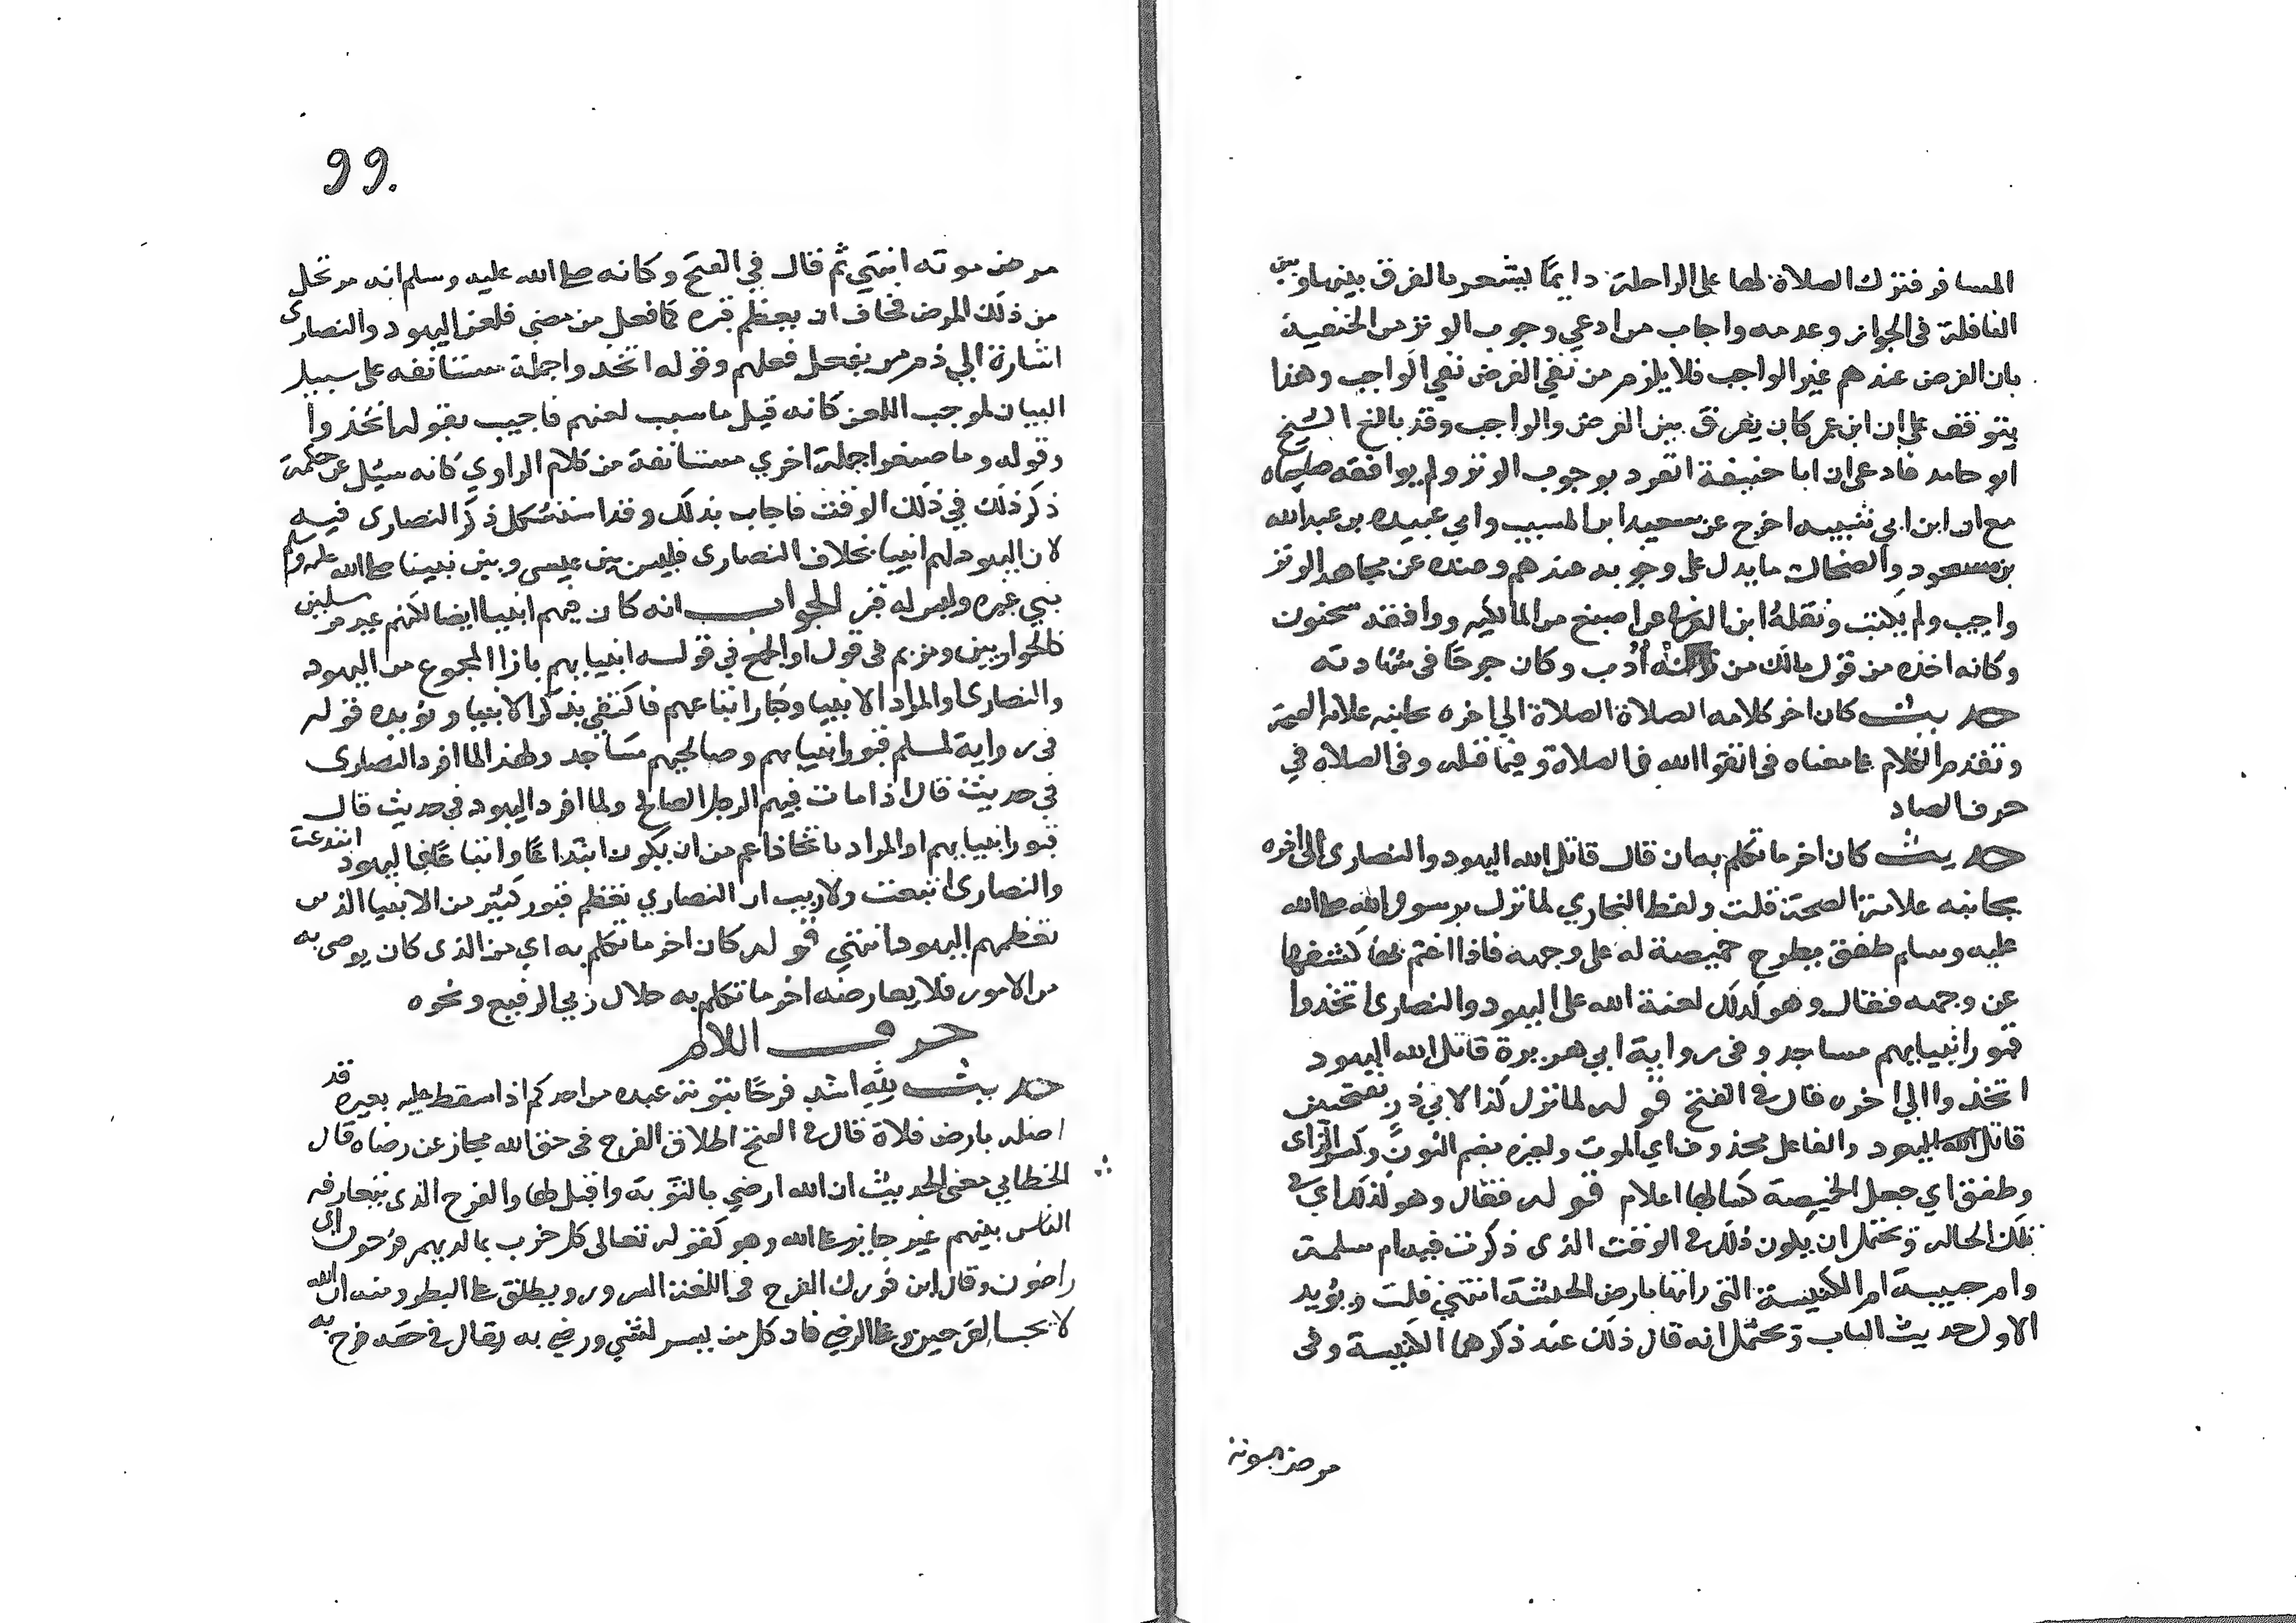 المسافر فترك الصلاة لها على الراحلة دايمًا ليشعر بالفرق بينها وبين
النافلة في الجواز وعدمه واجاب من ادعي وجوب الوتر من الحنفية
بان الفرض عندهم غير الواجب فلا يلزم من نفي الفرض نفي الواجب وهذا
يتوقف على ان ابن عمر كان يفرق بين الفرض والواجب وقد بالغ الشيخ
ابو حامد فادعى ان ابا حنيفة انفرد بوجوب الوتر ولم يوافقه صاحباه
مع ان ابن ابي شيبه اخرج عن سعيد ابن المسيب وابي عبيده بن عبدالله
بن مسعود والضحاك ما يدل على وجوبه عندهم وعنده عن مجاهد الوتر
واجب ولم يكتب ونقله ابن العربي عن اصبغ من المالكيه ووافقه سحنون
وكانه اخذه من قول مالك من تركه أُدب وكان جرحًا في شهادته
حديث كان اخر كلامه الصلاة الصلاة الي اخره بجانبه علامة الصحة
وتقدم الكلام على معناه في اتقوا الله في الصلاة وفيما قبله وفي الصلاة في
حرف الصاد
حديث كان اخر ما تكلم به ان قال قاتل الله اليهود والنصارى الى اخره
بجانبه علامة الصحة قلت ولفظ البخاري لما نزل برسول الله صلى الله
عليه وسلم طفق يطرح خميصة له على وجهه فاذا اغتم بها كشفها
عن وجهه فقال وهو كذلك لعنة الله على اليهود والنصارى اتخذوا
قبور انبيايهم مساجد وفي رواية ابي هريرة قاتل الله اليهود
اتخذوا الي اخره قال في الفتح قوله لما نزل كذا لابي ذر بفتحتين
قاتل الله اليهود والفاعل محذوف اي الموت ولغيره بضم النون وكسر الزاى
وطفق اي جعل الخميصة كسا لها اعلام قوله فقال وهو كذلك اي في
تلك الحاله ويحتمل ان يكون ذلك في الوقت الذى ذكرت فيه ام سلمة
وام حبيبة امر الكنيسة التى راتاها بارض الحبشة انتهي قلت ويؤيد
الاول حديث الباب ويحتمل انه قال ذلك عند ذكرهما الكنيسة وفى
مرض موته
99.
مرض موته انتهي ثم قال في الفتح وكانه صلى الله عليه وسلم انه مرتحل
من ذلك المرض فخاف ان يعظم قبره كما فعل من مضي فلعن اليهود والنصارى
اشارة الي ذم من يفعل فعلهم وقوله اتخذوا جملة مستانفه على سبيل
البيان لموجب اللعن كانه قيل ما سبب لعنهم فاجيب بقوله اتخذوا
وقوله وما صنعوا جملة اخري مستانفة من كلام الراوي كانه سيل عن حكمة
ذكر ذلك في ذلك الوقت فاجاب بذلك وقد استشكل ذكر النصارى فيه
لان اليهود لهم انبيا بخلاف النصارى فليس بين عيسى وبين نبينا صلى الله عليه وسلم
نبي غيره وليس له قبر الجواب انه كان فيهم انبيا ايضا لكنهم غير مرسلين
كالحواريين ومريم في قول او الجمع في قوله انبيايهم بازا المجموع من اليهود
والنصارى او المراد الانبيا وكبار اتباعهم فاكتفي بذكر الانبيا ويؤيده قوله
في رواية لمسلم قبور انبيايهم وصالحيهم مساجد ولهذا لما افرد النصارى
في حديث قال اذا مات فيهم الرجل الصالح ولما افرد اليهود في حديث قال
قبور انبيايهم او المراد باتخاذ اعم من ان يكون ابتداعًا واتباعًا فاليهود ابتدعت
والنصارى اتبعت ولا ريب ان النصاري تعظم قبور كثير من الانبيا الذين
تعظمهم اليهود انتهي قوله كان اخر ما تكلم به اي من الذى كان يوصى به
من الامور فلا يعارضه اخر ما تكلم به جلال ربي الرفيع ونحوه
حرف اللام
حديث للهِ اشد فرحًا بتوبة عبده من احدكم اذا سقط عليه بعيره قد
اضله بارض فلاة قال في الفتح اطلاق الفرح في حق الله مجاز عن رضاه قال
الخطابي معنى الحديث ان الله ارضي بالتوبة واقبل لها والفرح الذى يتعارفه
الناس بينهم غير جايز على الله وهو كقوله تعالى كل حزب بما لديهم فرحون اى
راضون وقال ابن فورك الفرح في اللغة السرور ويطلق على البطر ومنه ان الله
لا يحب الفرحين وعلى الرضي فان كل من يسر لشي ورضي به يقال في حقه فرح به